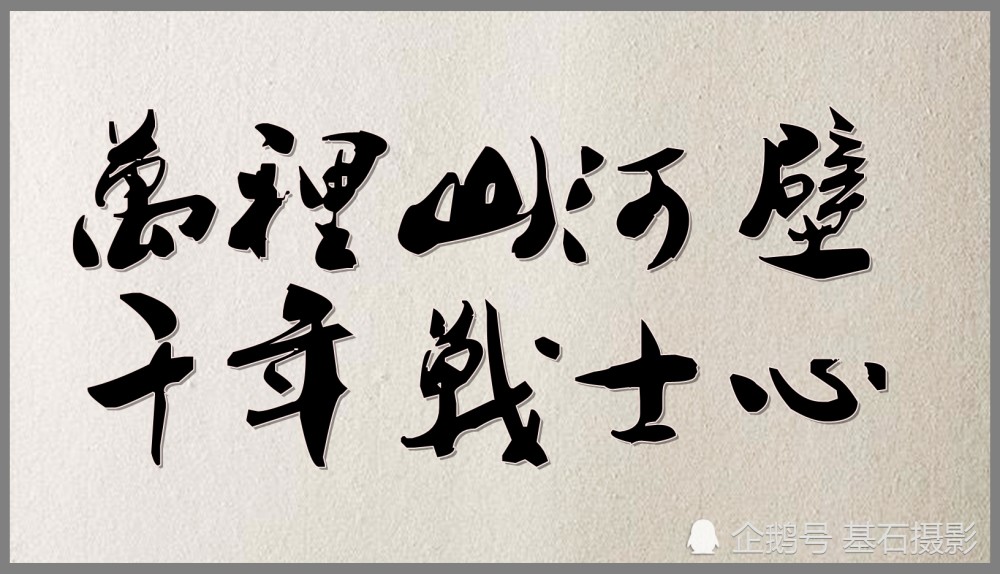 萬裡山河壁
千年戰士心
企鹅号 基石摄影